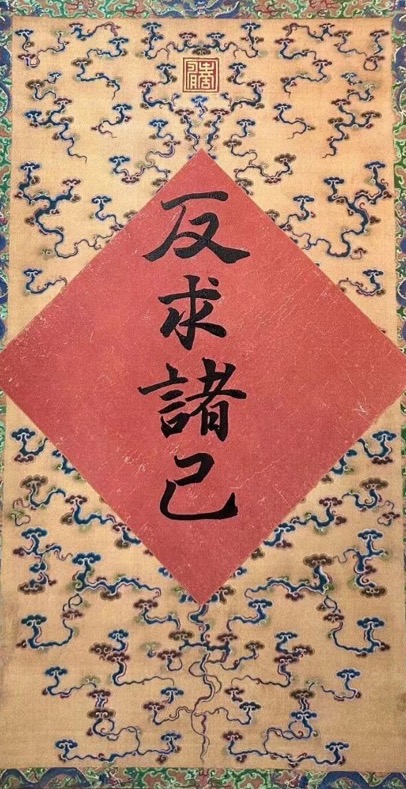 反求諸己